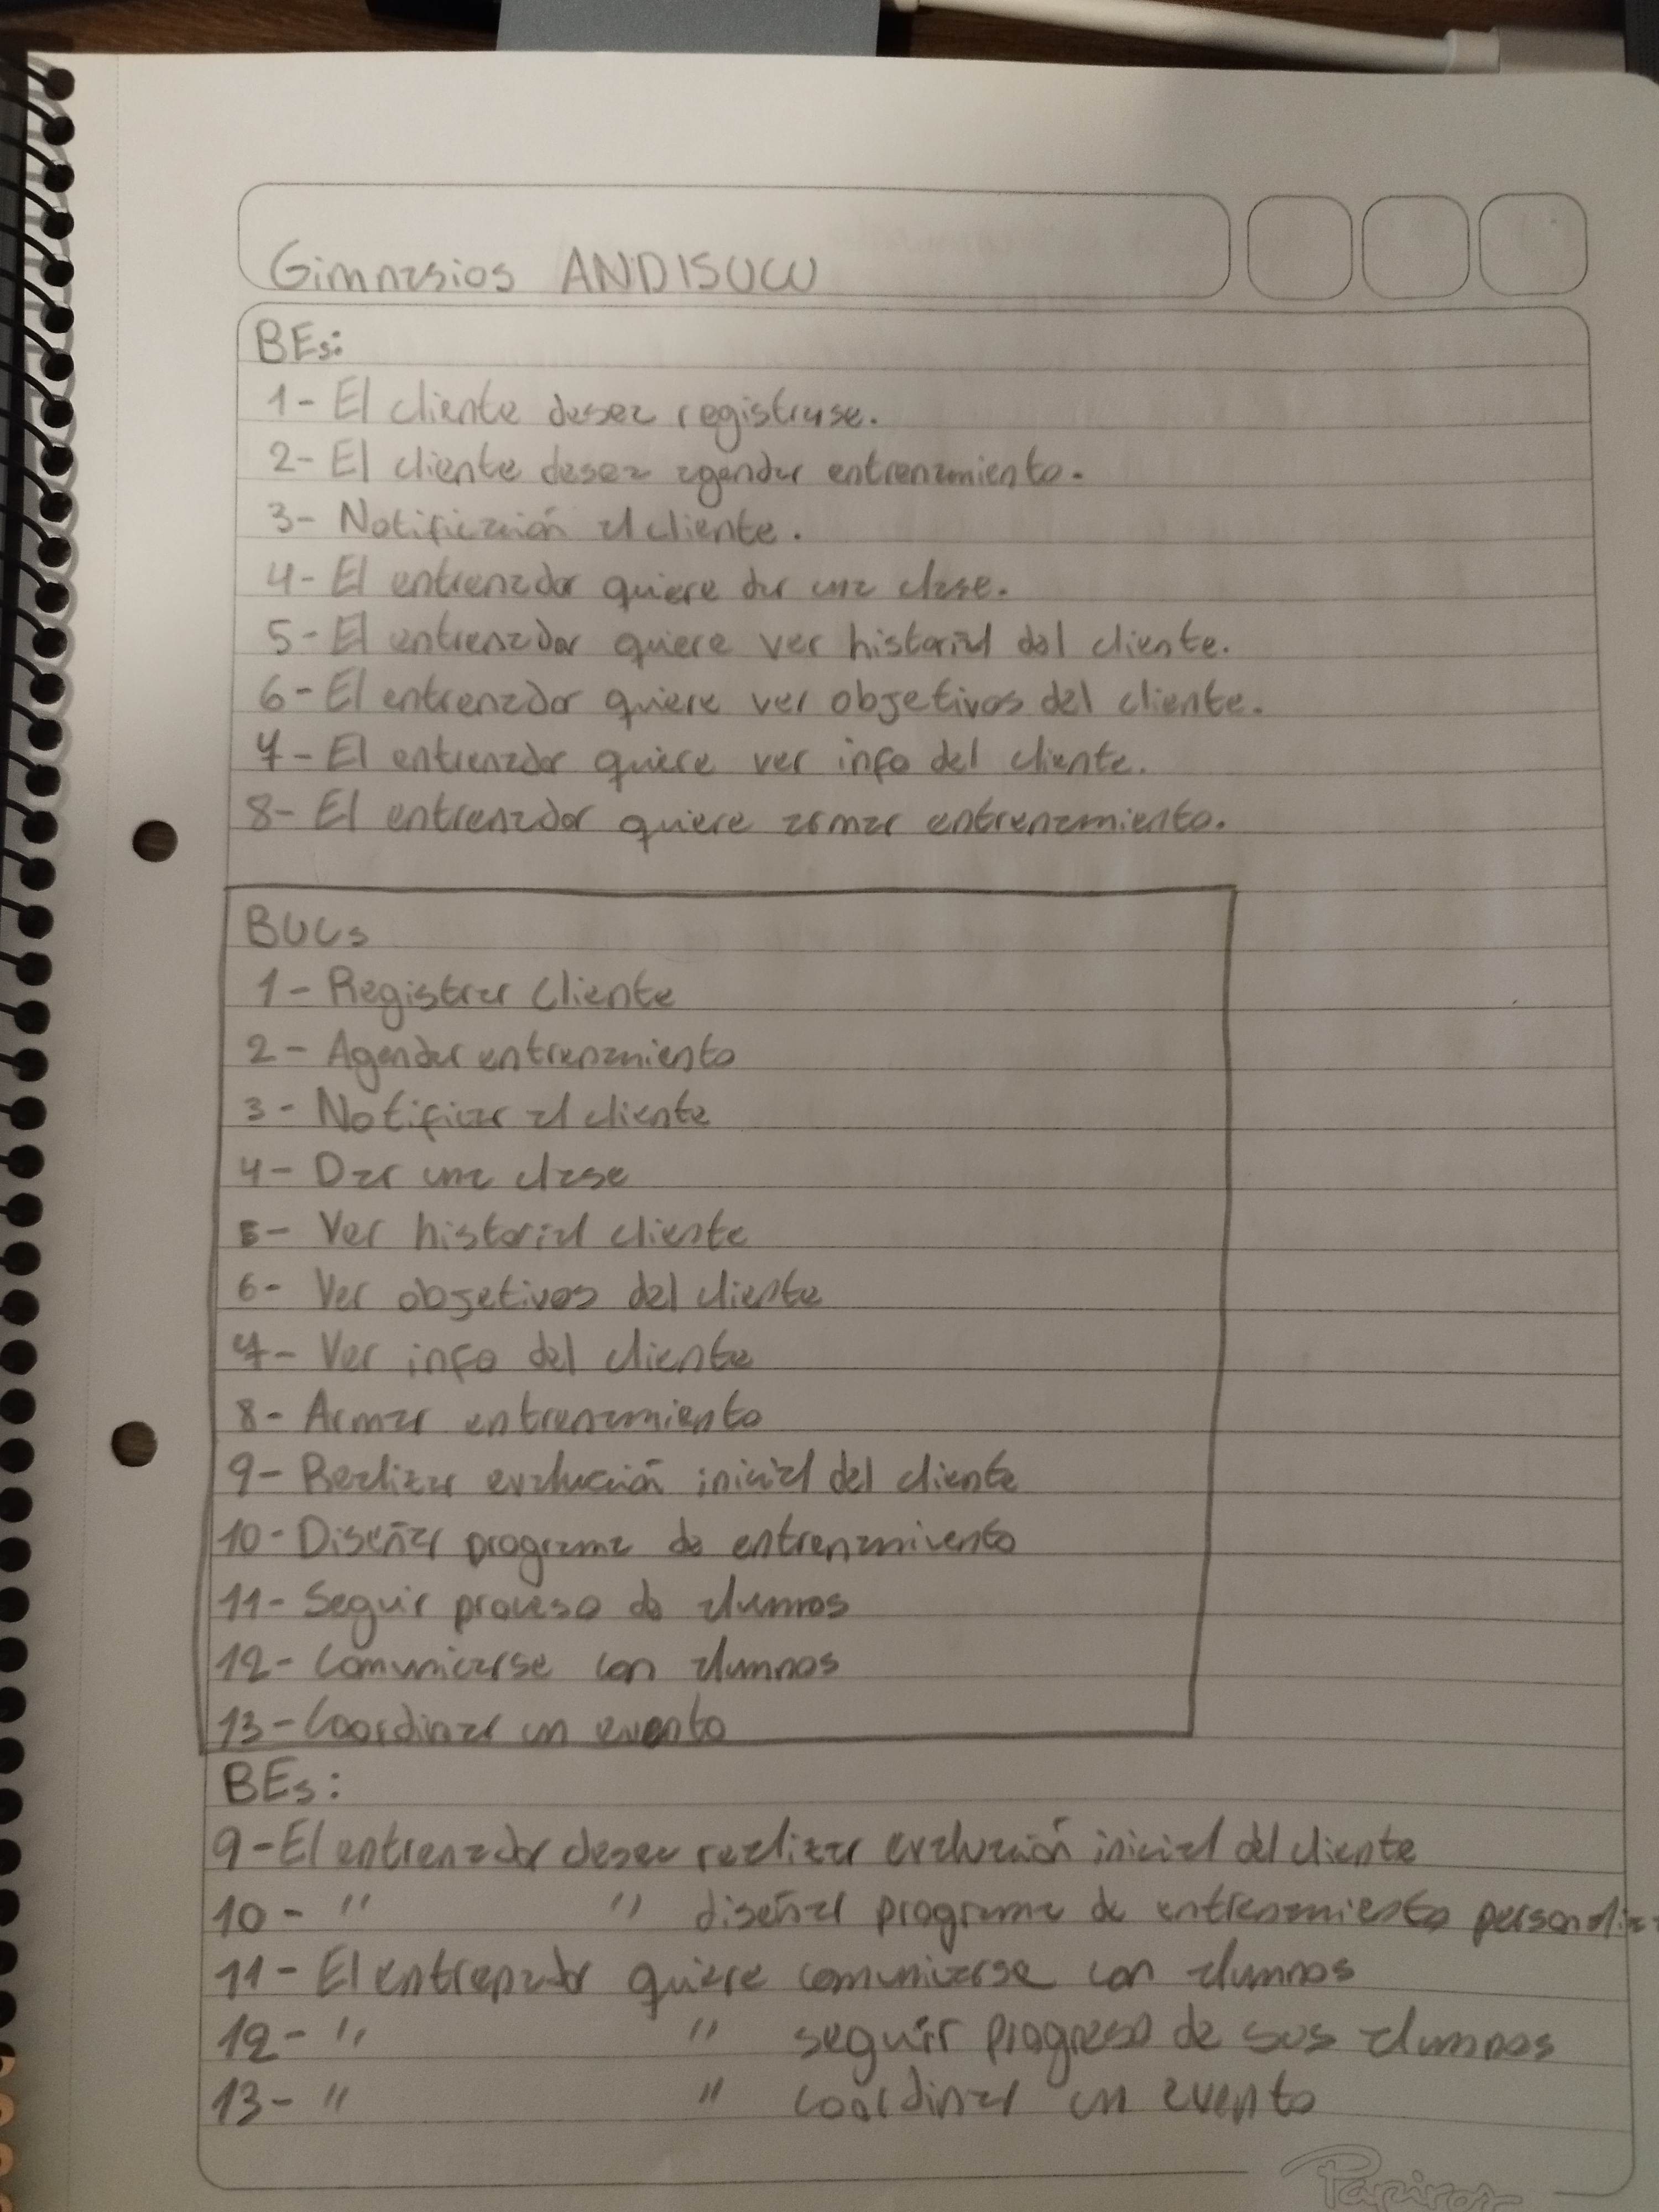 Gimnasios ANDISUCU
BEs:
1- El cliente desea registrarse.
2- El cliente desea agendar entrenamiento.
3- Notificación al cliente.
4- El entrenador quiere dar una clase.
5- El entrenador quiere ver historial del cliente.
6- El entrenador quiere ver objetivos del cliente.
7- El entrenador quiere ver info del cliente.
8- El entrenador quiere armar entrenamiento.
BUCs
1- Registrar Cliente
2- Agendar entrenamiento
3- Notificar al cliente
4- Dar una clase
5- Ver historial cliente
6- Ver objetivos del cliente
7- Ver info del cliente
8- Armar entrenamiento
9- Realizar evaluación inicial del cliente
10- Diseñar programa de entrenamivento
11- Seguir proceso de alumnos
12- Comunicarse con alumnos
13- Coordinar un evento
BEs:
9- El entrenador desea realizar evaluación inicial del cliente
10- " " diseñar programa de entrenamiento personaliza
11- El entrenador quiere comunicarse con alumnos
12- " " seguir progreso de sus alumnos
13- " " coordinar un evento